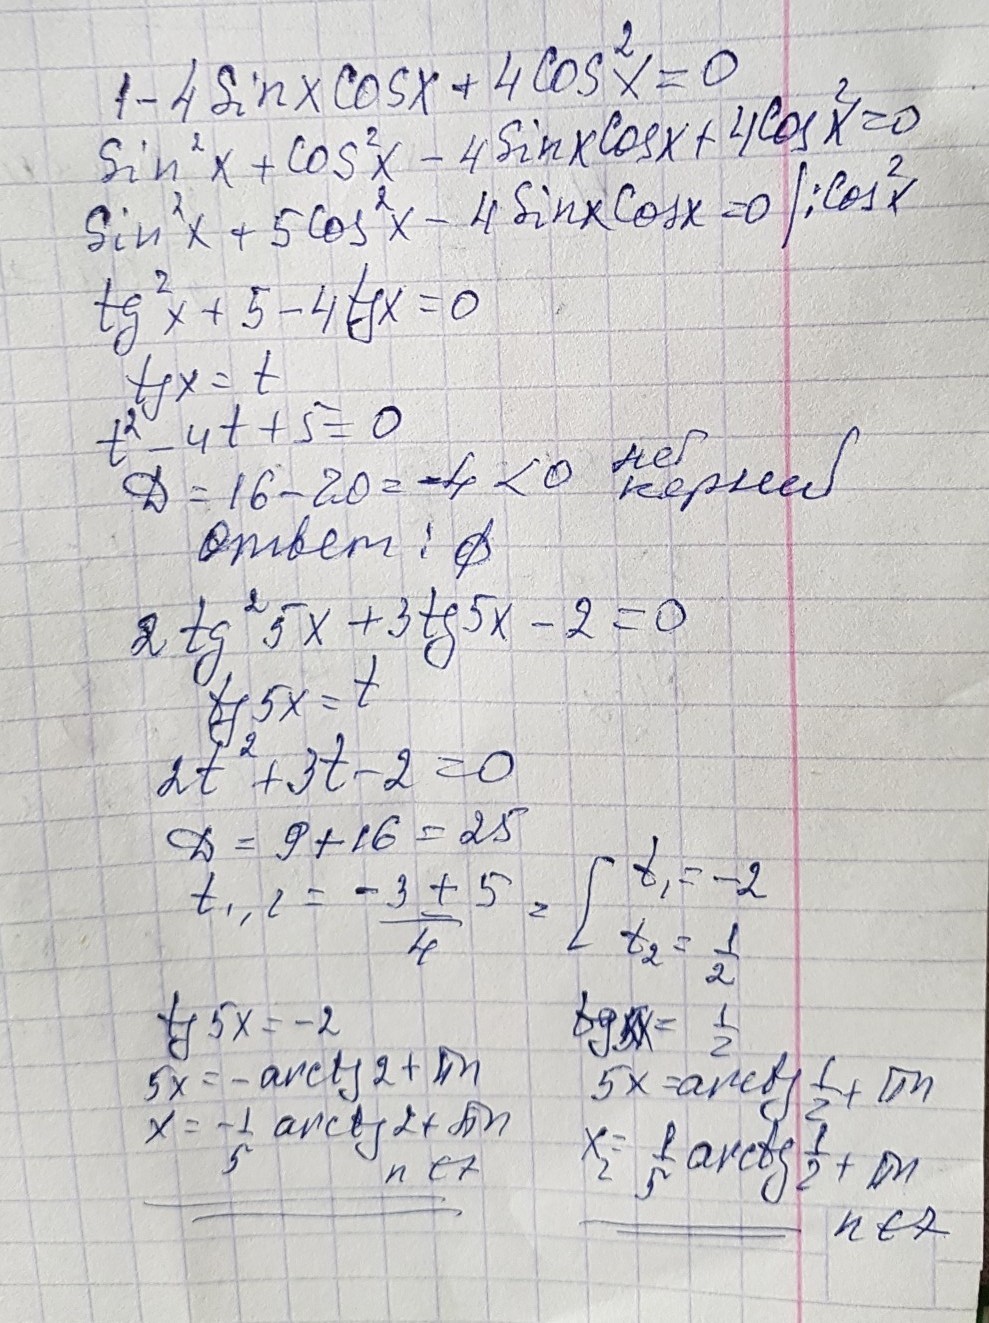 1 - 4 Sin x Cos x + 4 Cos²x = 0
Sin²x + Cos²x - 4 Sin x Cos x + 4 Cos²x = 0
Sin²x + 5 Cos²x - 4 Sin x Cos x = 0 | : Cos²x
tg²x + 5 - 4 tg x = 0
tg x = t
t² - 4t + 5 = 0
D = 16 - 20 = -4 < 0 нет корней
Ответ: ∅
2 tg²5x + 3 tg 5x - 2 = 0
tg 5x = t
2t² + 3t - 2 = 0
D = 9 + 16 = 25
t₁,₂ = (-3 ± 5)/4 = [ t₁ = -2
t₂ = 1/2
tg 5x = -2
5x = -arctg 2 + πn
x = -1/5 arctg 2 + πn
n ∈ Z
tg 5x = 1/2
5x = arctg 1/2 + πn
x₂ = 1/5 arctg 1/2 + πn
n ∈ Z